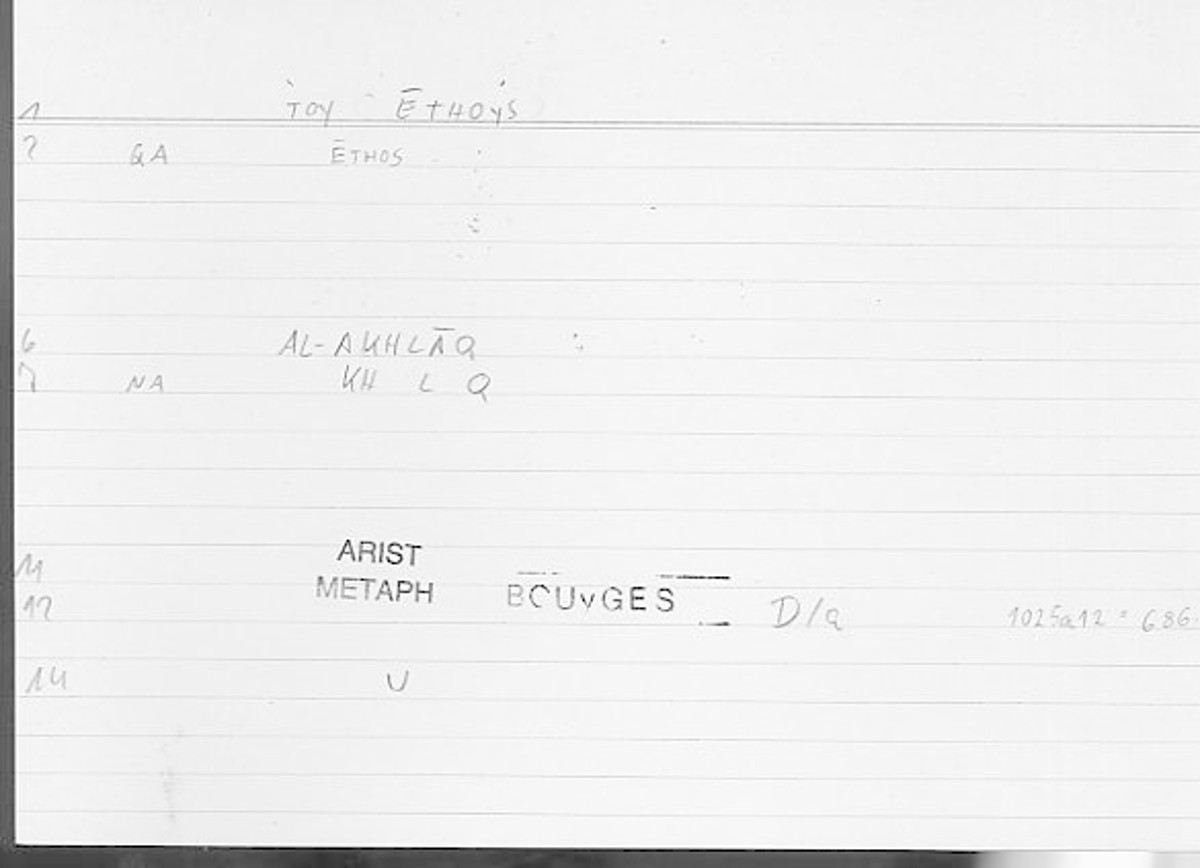 1 TOY ĒTHOYS
2 GA ĒTHOS
6 AL-AKHLĀQ
7 NA KH L Q
ARIST
11
METAPH BOUYGES
12 D/a 1025a12 = 686.
14 U